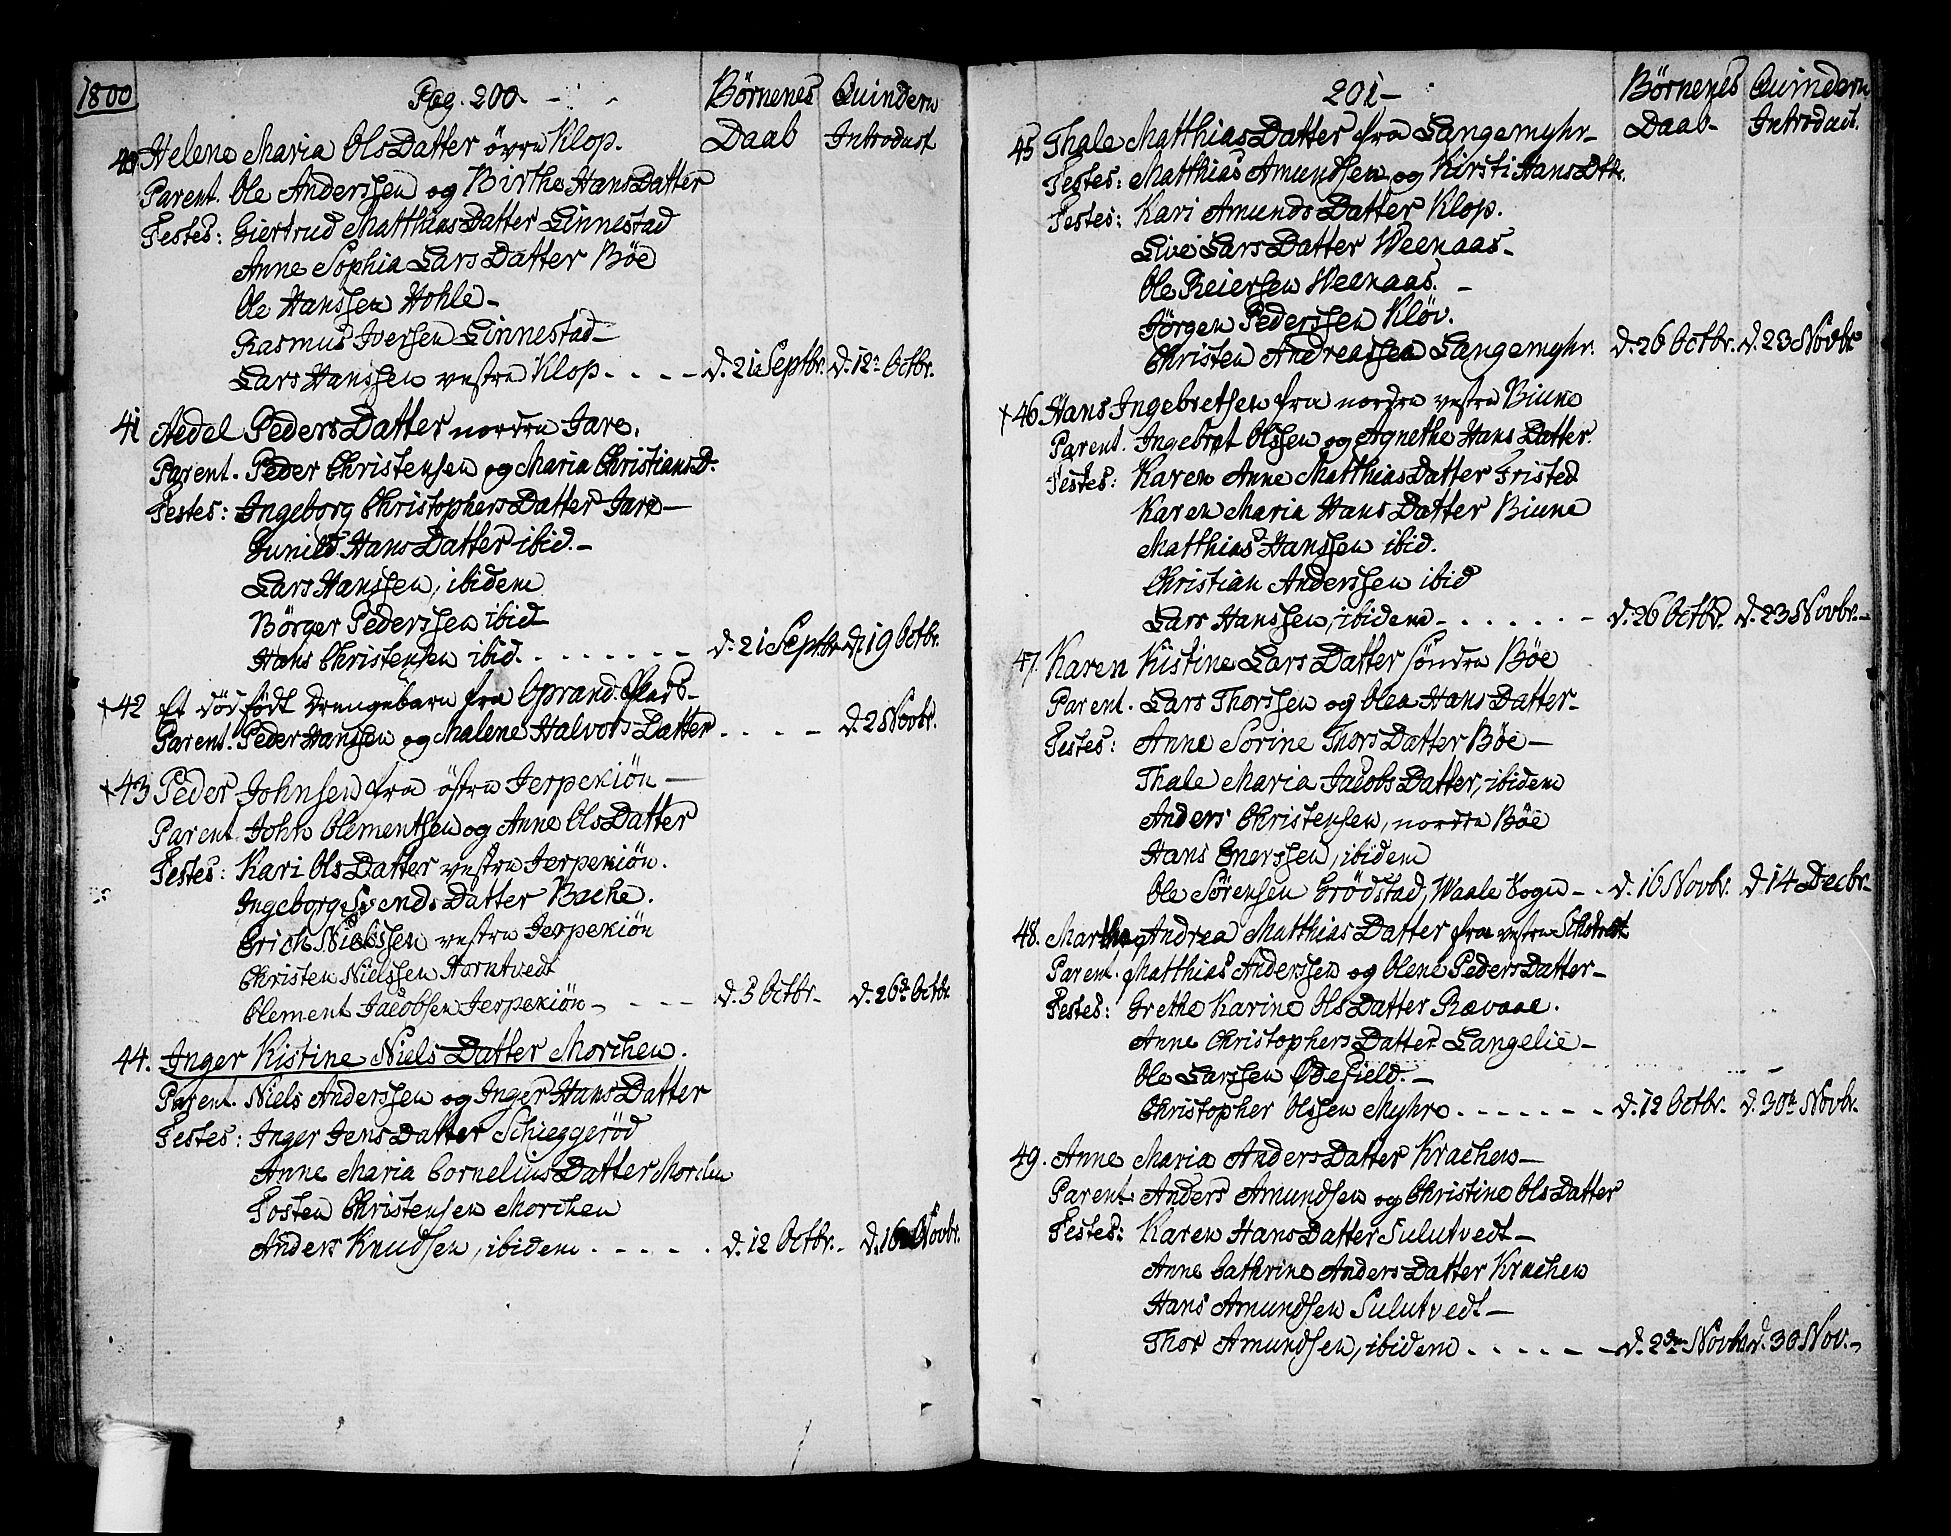 1800
Pag. 200
Börnenes Daab
Quindern Introduct
40 Helene Maria OlsDatter övre Klop.
Parent. Ole Anderssen og Birthe HansDatter
Testes: Giertrud MatthiasDatter Linnestad
Anne Sophia LarsDatter Böe
Ole Hanssen Hohle
Rasmus Iversen Linnestad
Lars Hanssen vestre Klop. - - - d. 21 Septbr. d. 12te Octbr.
41 Aedel PedersDatter nordre Jare.
Parent. Peder Christensen og Maria ChristiansD.
Testes: Ingeborg ChristophersDatter Jare
Gunild HansDatter ibid.
Lars Hanssen, ibidem
Börger Pederssen ibid
Hans Christensen ibid. - - - d. 21 Septbr d. 19 Octbr.
+ 42 Et dödfödt Drengebarn fra Oprand.
Parent. Peder Hanssen og Malene HalvorsDatter - - - d. 2 Novbr.
+ 43 Peder Johnsen fra östre Jerpekiön
Parent. John Clementsen og Anne OlsDatter
Testes: Kari OlsDatter vestre Jerpekiön.
Ingeborg SvendsDatter Bache.
Erich Nielssen vestre Jerpekiön
Christen Nielssen Horntvedt
Clement Jacobsen Jerpekiön - - - d. 5 Octbr. d. 26de Octbr.
44. Inger Kistine NielsDatter Morchen.
Parent. Niels Anderssen og Inger HansDatter
Testes: Inger JensDatter Schieggeröd
Anne Maria CorneliusDatter Morchen
Tosten Christensen Morchen
Anders Knudsen, ibidem - - - d. 12 Octbr. d. 16 Novbr.
201
Börnenes Daab
Quindern Introduct.
45 Thale MatthiasDatter fra Langemyhr
Testes: Matthias Amundsen og Kirsti HansDtr.
Testes: Kari AmundsDatter Klop.
Live LarsDatter Weenaas
Ole Reiersen Weenaas.
Jörgen Pederssen Klöv.
Christen Andreassen Langemyhr. d. 26 Octbr. d. 23 Novbr
+ 46. Hans Ingebretsen fra nordre vestre Biune
Parent. Ingebret Olssen og Agnethe HansDatter.
Testes: Karen Anne MatthiasDatter Fristed
Karen Maria HansDatter Biune
Matthias Hanssen ibid.
Christian Anderssen ibid
Lars Hanssen, ibidem - - - d. 26 Octbr. d. 23 Novbr.
47. Karen Kistine LarsDatter söndre Böe
Parent. Lars Thorssen og Olea HansDatter
Testes: Anne Sorine ThorsDatter Böe
Thale Maria JacobsDatter, ibidem
Anders Christensen, nordre Böe
Hans Enerssen, ibidem
Ole Sörensen Grödstad, Waale Sogn - - d. 16 Novbr. d. 14 Decbr.
48. Marthe Andrea MatthiasDatter fra vestre
Parent. Matthias Anderssen og Olene PedersDatter
Testes: Grethe Karine OlsDatter Rævaae.
Anne ChristophersDatter Langelie
Ole Larssen Ödefield.
Christopher Olssen Myhre - - - d. 12 Octbr. d. 30te Novbr.
49. Anne Maria AndersDatter Krachen
Parent. Anders Amundsen og Christine OlsDatter
Testes: Karen HansDatter Sulutvedt
Anne Cathrine AndersDatter Krachen
Hans Amundsen Sulutvedt
Thor Amundsen, ibidem - - - d. 2den Novbr d. 30 Nov.